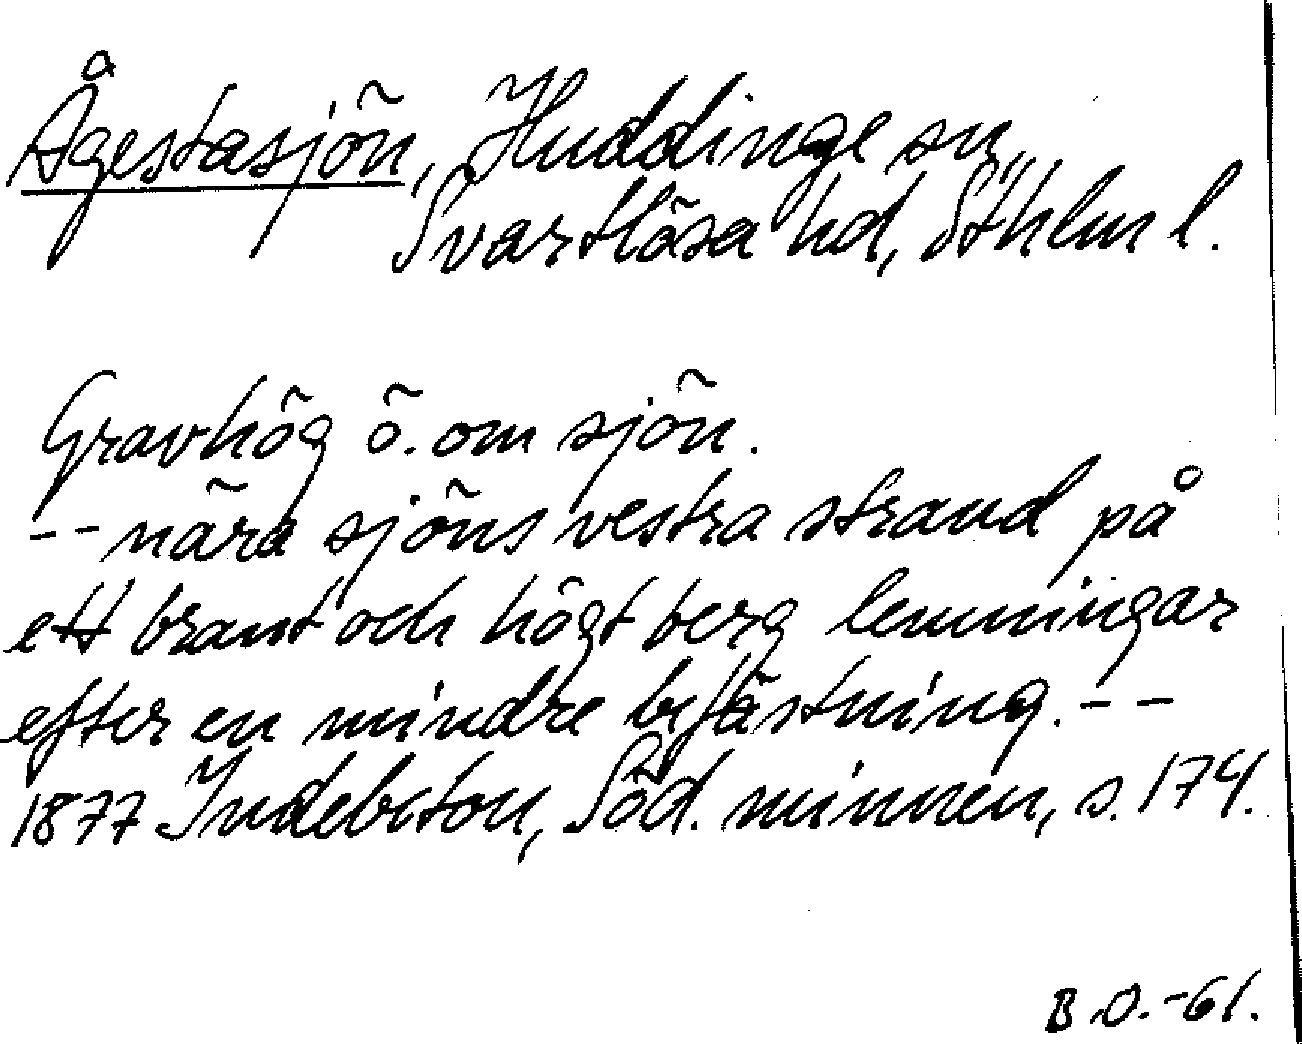 Ågestasjön, Huddinge sn,
Svartlösa hd, Sthlm l.
Gravhög ö. om sjön.
-- nära sjöns vestra strand på
ett brant och högt berg lemningar
efter en mindre befästning. --
1877 Indebetou, Söd. minnen, s. 174.
B.O. -61.